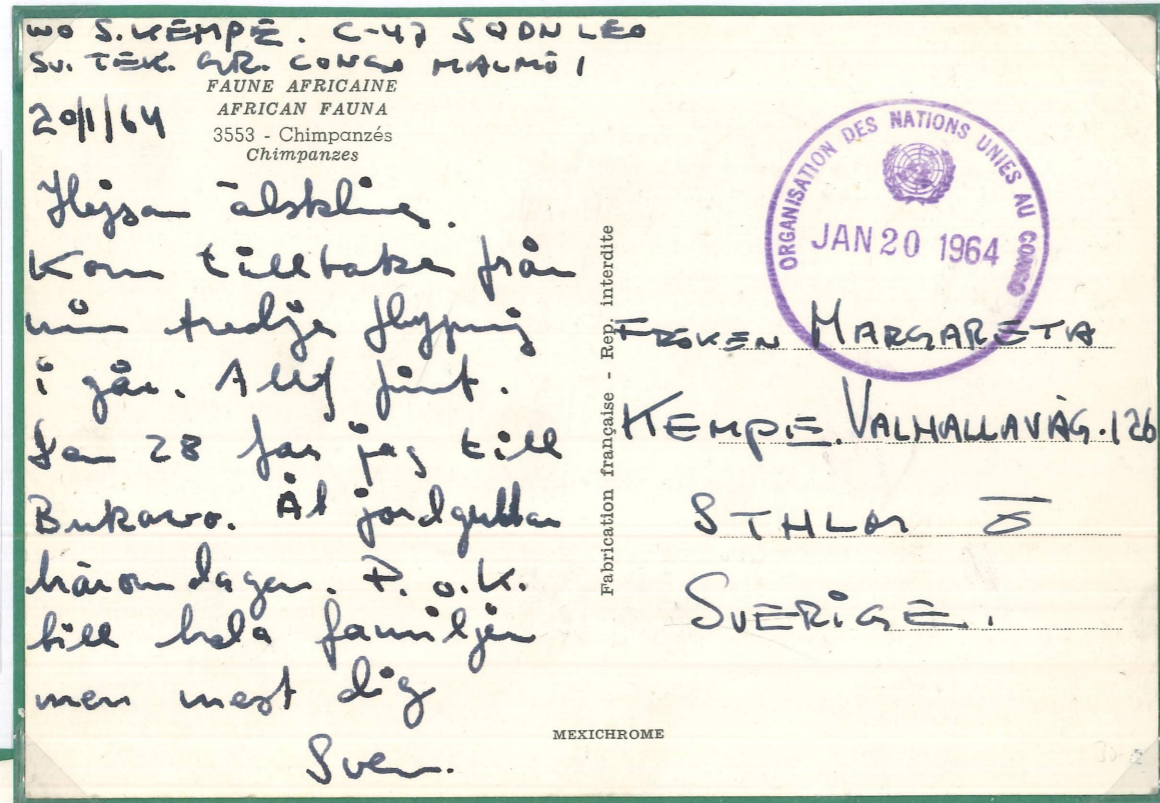 WO S. KEMPE. C-47 SQDN LEO
SV. TEK. GR. CONGO MALMÖ 1
20/1/64
FAUNE AFRICAINE
AFRICAN FAUNA
3553 - Chimpanzés
Chimpanzes
Hejsan älskling.
Kom tillbaka från
min tredje flygning
i går. Allt fint.
Den 28 far jag till
Bukavo. Åt jordgubbar
häromdagen. P.o.K.
till hela familjen
men mest dig
Sven.
Fabrication française - Rep. interdite
MEXICHROME
ORGANISATION DES NATIONS UNIES AU CONGO
JAN 20 1964
FRÖKEN MARGARETA
KEMPE. VALHALLAVÄG. 126
STHLM Ö
SVERIGE.